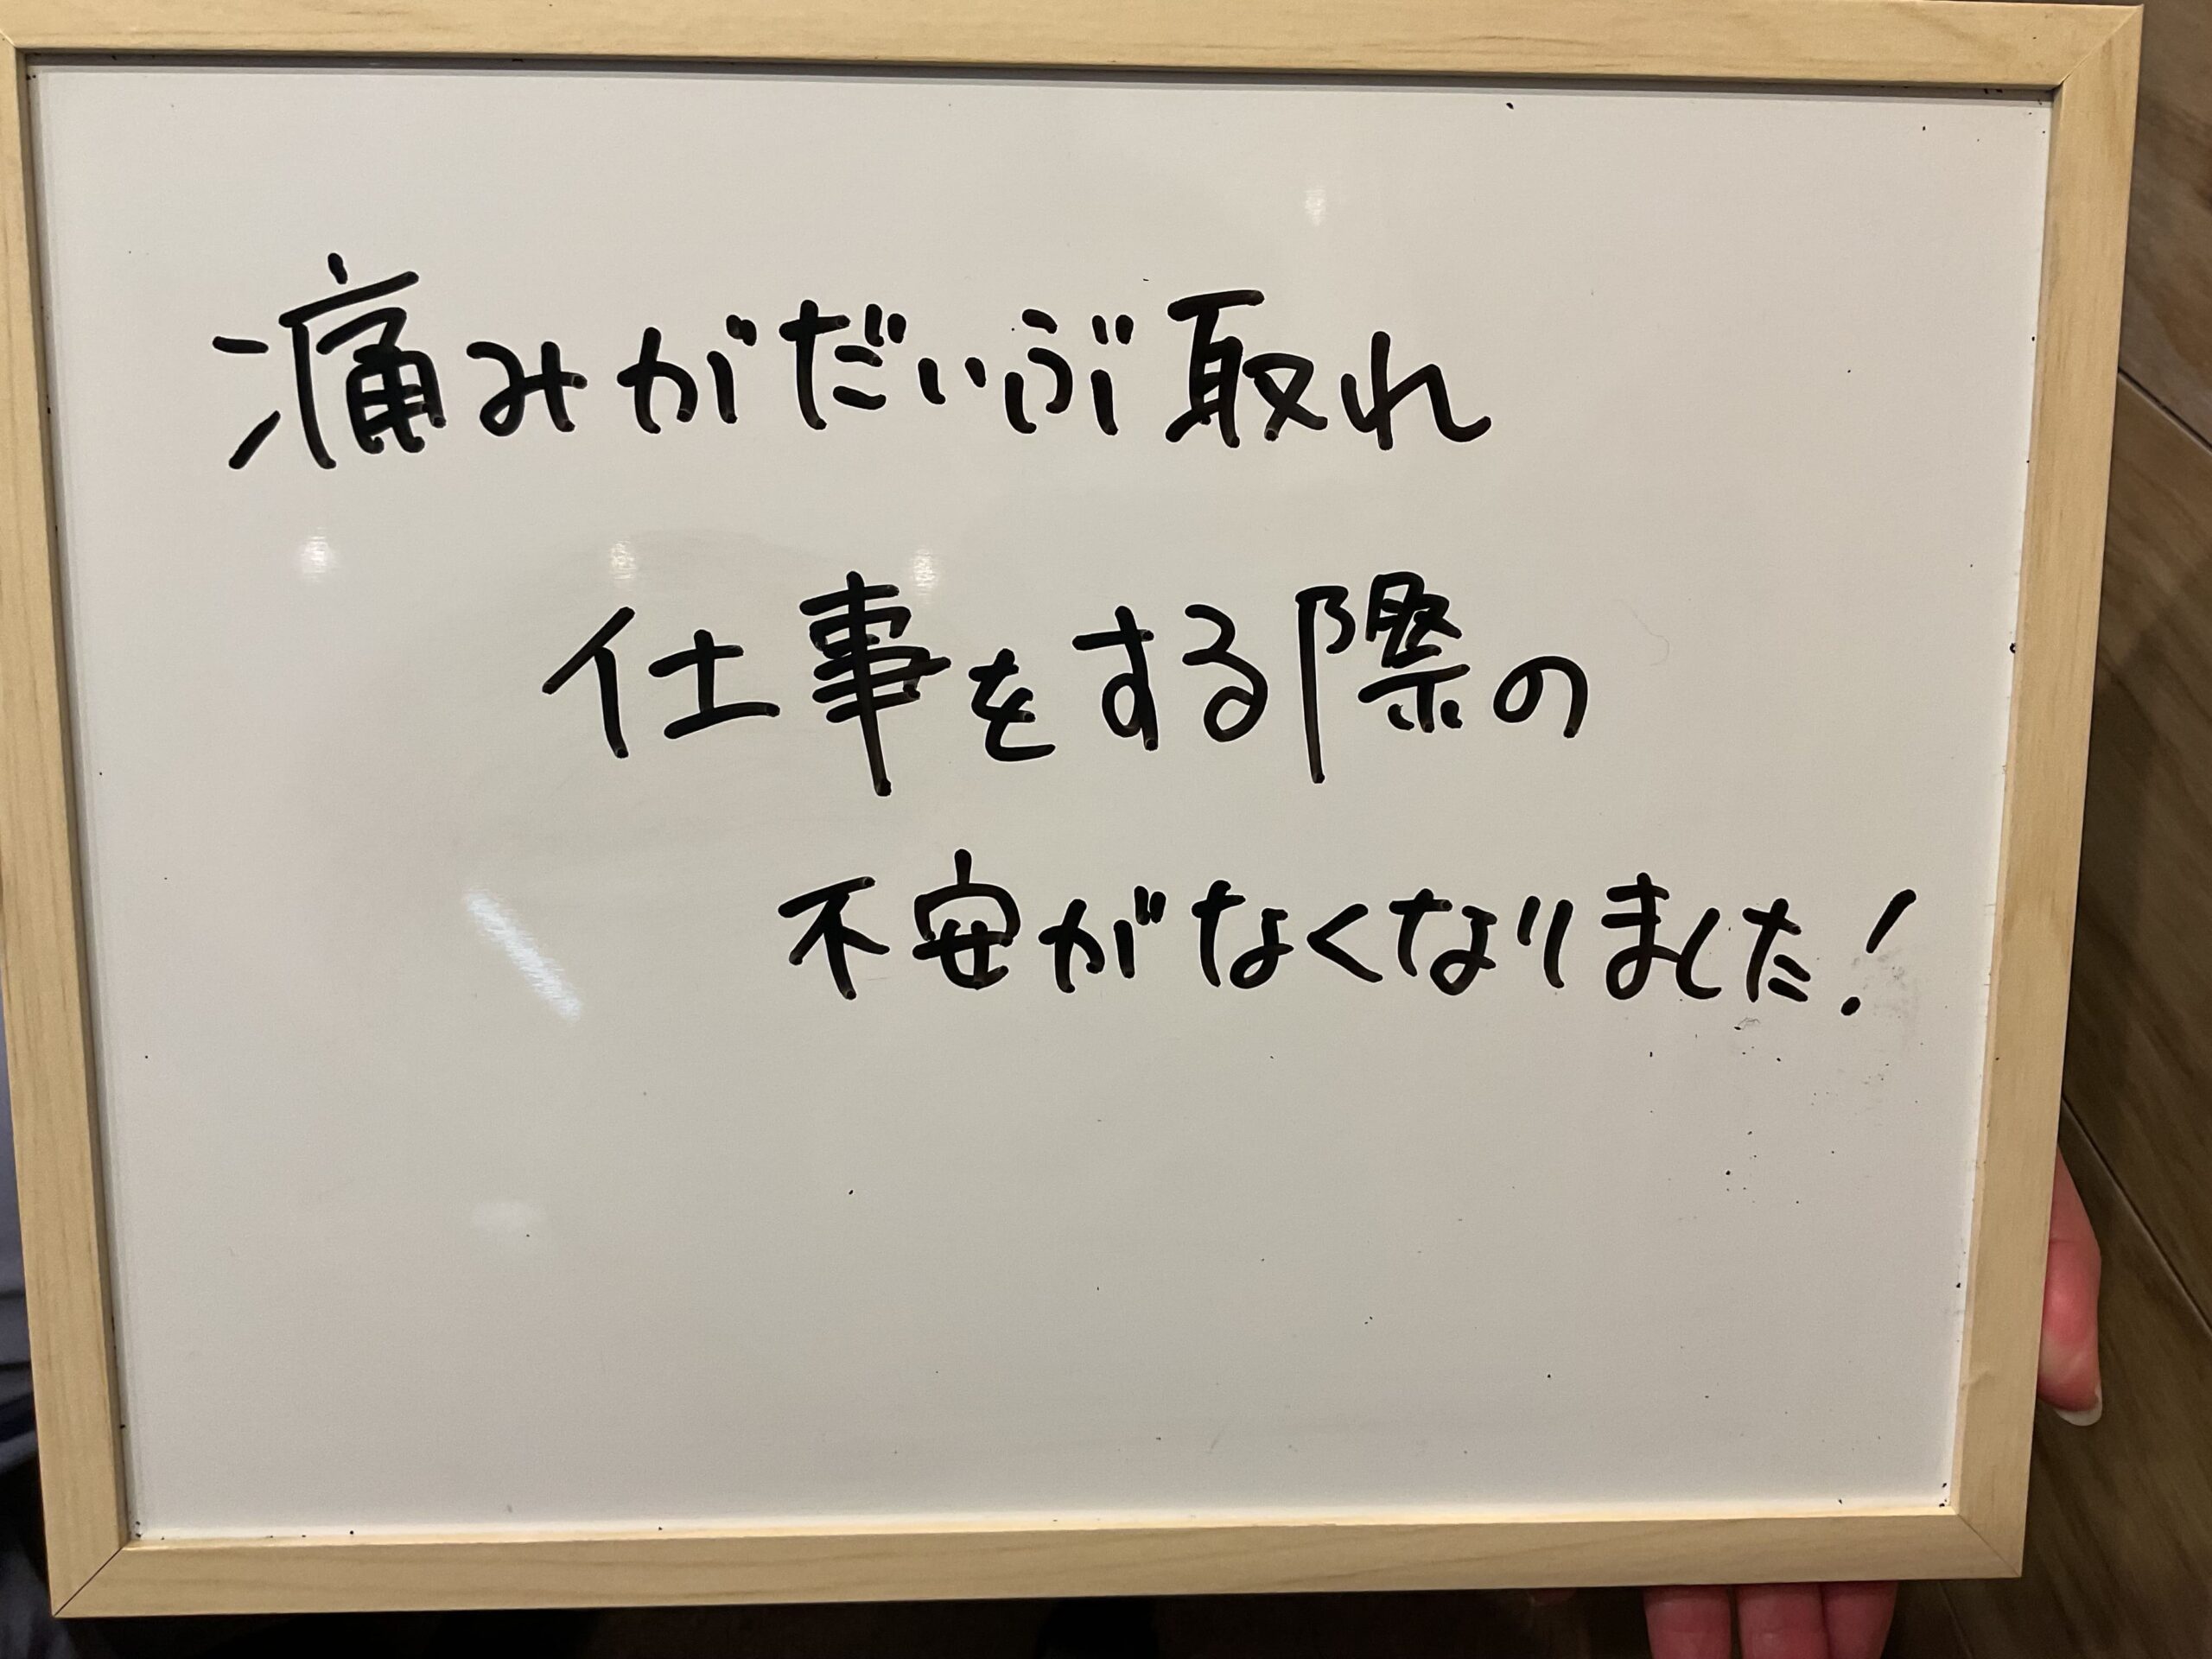 痛みがだいぶ取れ
仕事をする際の
不安がなくなりました!